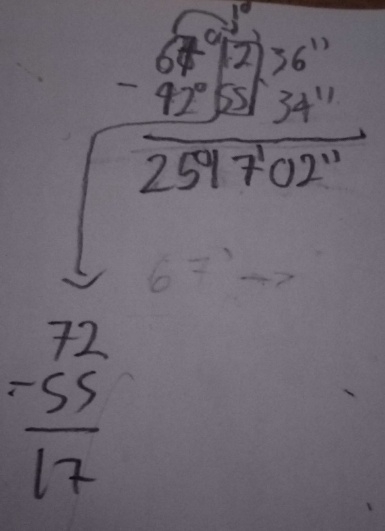 1°
12' 36"
- 42° 55' 34"
25°17'02"
67° →
72
-55
17